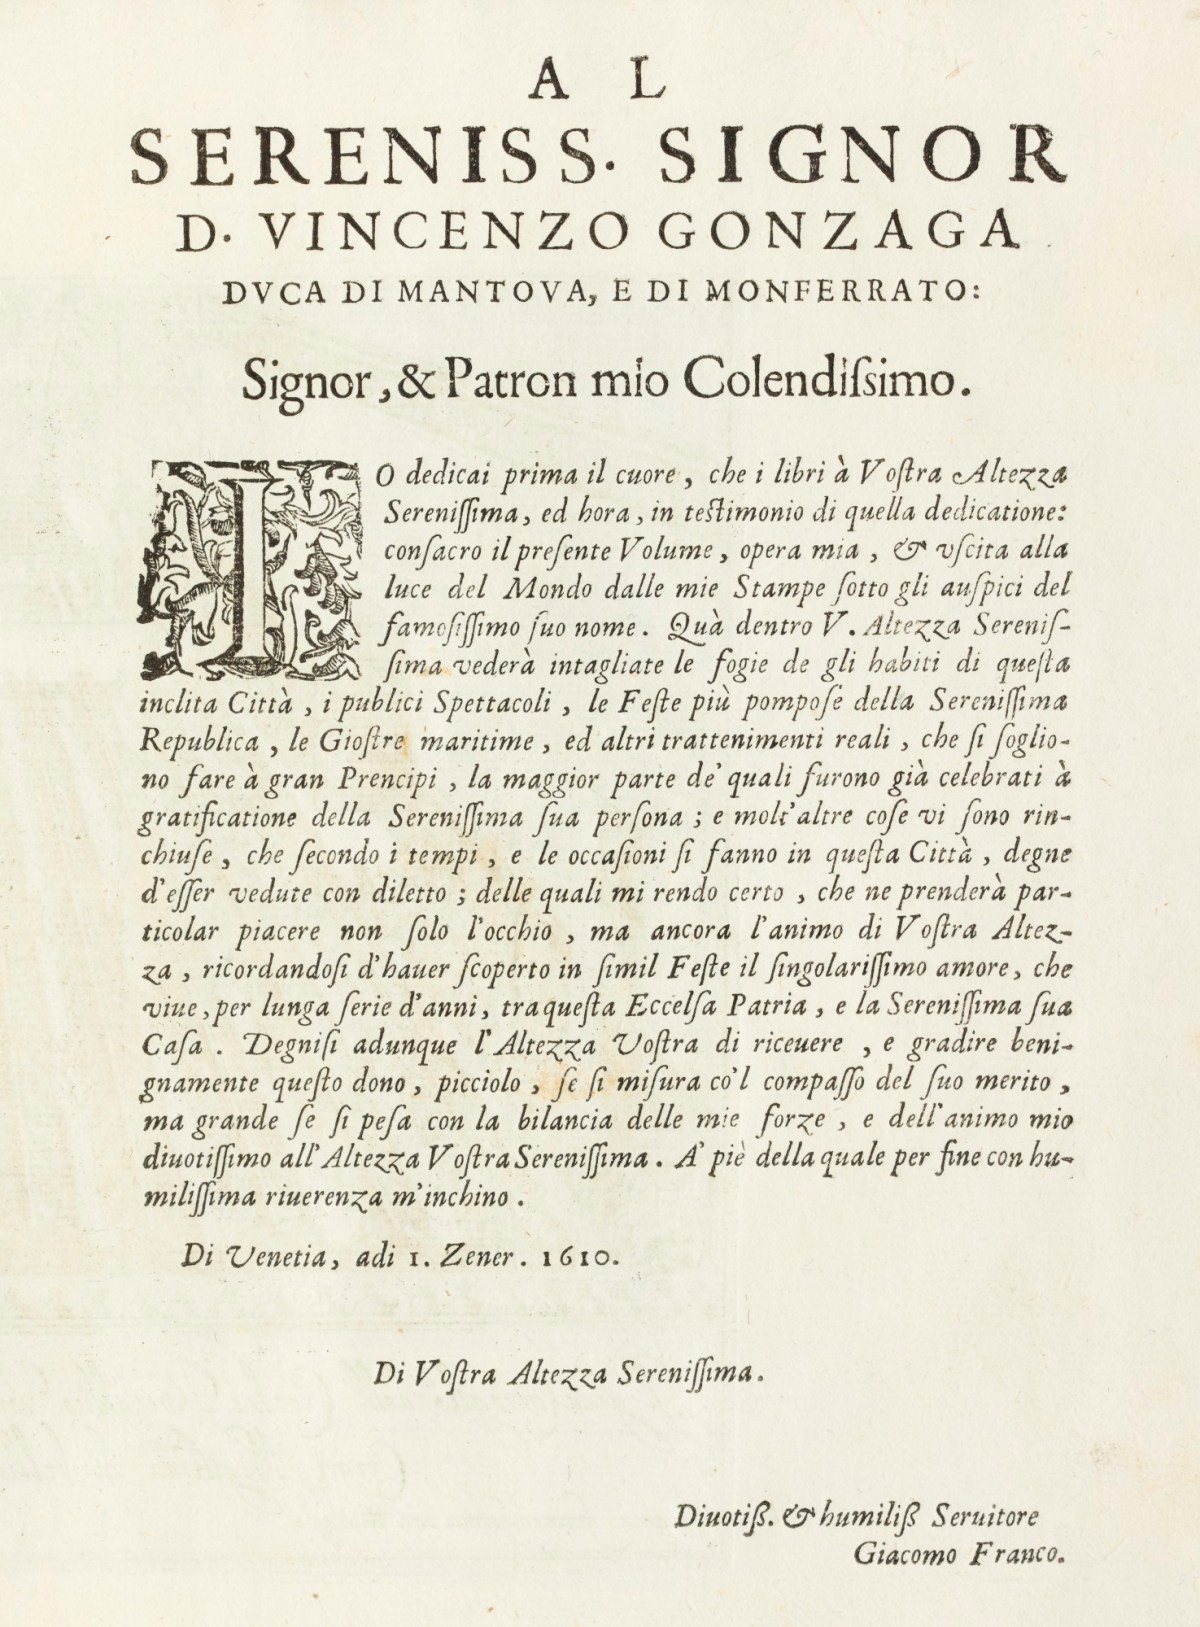 A L
SERENISS. SIGNOR
D. VINCENZO GONZAGA
DVCA DI MANTOVA, E DI MONFERRATO:
Signor, & Patron mio Colendiſsimo.
IO dedicai prima il cuore, che i libri à Voſtra Altezza
Sereniſſima, ed hora, in teſtimonio di quella dedicatione:
conſacro il preſente Volume, opera mia, & vſcita alla
luce del Mondo dalle mie Stampe ſotto gli auſpici del
famoſiſſimo ſuo nome. Quà dentro V. Altezza Sereniſ-
ſima vederà intagliate le fogie de gli habiti di queſta
inclita Città, i publici Spettacoli, le Feſte più pompoſe della Sereniſſima
Republica, le Gioſtre maritime, ed altri trattenimenti reali, che ſi ſoglio-
no fare à gran Prencipi, la maggior parte de' quali furono già celebrati à
gratificatione della Sereniſſima ſua perſona; e molt'altre coſe vi ſono rin-
chiuſe, che ſecondo i tempi, e le occaſioni ſi fanno in queſta Città, degne
d'eſſer vedute con diletto; delle quali mi rendo certo, che ne prenderà par-
ticolar piacere non ſolo l'occhio, ma ancora l'animo di Voſtra Altez-
za, ricordandoſi d'hauer ſcoperto in ſimil Feſte il ſingolariſſimo amore, che
viue, per lunga ſerie d'anni, tra queſta Eccelſa Patria, e la Sereniſſima ſua
Caſa. Degniſi adunque l'Altezza Voſtra di riceuere, e gradire beni-
gnamente queſto dono, picciolo, ſe ſi miſura co'l compaſſo del ſuo merito,
ma grande ſe ſi peſa con la bilancia delle mie forze, e dell'animo mio
diuotiſſimo all'Altezza Voſtra Sereniſſima. A' piè della quale per fine con hu-
miliſſima riuerenza m'inchino.
Di Venetia, adi 1. Zener. 1610.
Di Voſtra Altezza Sereniſſima.
Diuotiß. & humiliß Seruitore
Giacomo Franco.